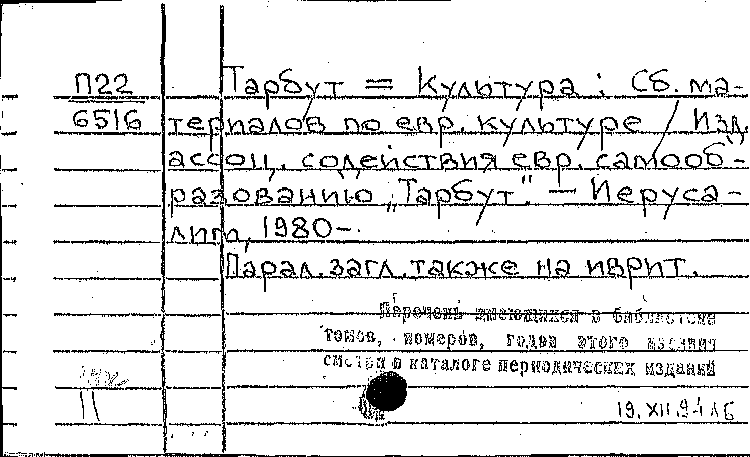 П22
6516
Тарбут = Культура : Сб. ма-
териалов по евр. культуре / Изд.
ассоц. содействия евр. самооб-
разованию „Тарбут". — Иеруса-
лим, 1980-
Парал. загл. также на иврит.
Перечень имеющихся в библиотеке
томов, номеров, годов этого издания
смотри в каталоге периодических изданий
19.XII.94